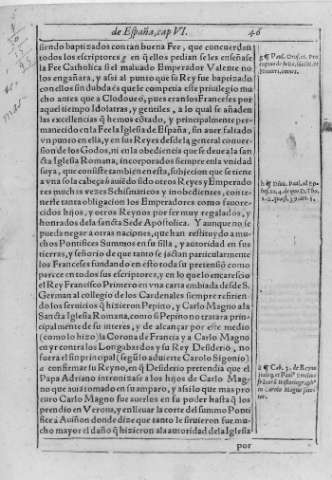 de España, cap VI. 46
siendo baptizados con tan buena Fee, que concuerdan
todos los escriptores g en q̃ ellos pedian se les enseñase
la Fee Catholica si el malvado Emperador Valente no
los engañara, y asi al punto que su Rey fue baptizado
con ellos sin dubda es que le competia este privilegio mu
cho antes que a Clodoueo, pues eran los Franceses por
aquel tiempo Idolatras, y gentiles, a lo qual se añaden
las excellencias q̃ hemos cõtado, y principalmente per-
manecido en la Fee la Iglesia de España, sin auer faltado
vn punto en ella, y en sus Reyes desde la general conuer-
sion de los Godos, ni en la obediencia que se deue a la san-
cta Iglesia Romana, incorporados siempre en la vnidad
suya, que consiste tambien en esta, subjection que se tiene
a vna sola cabeça h auiẽdo sido otros Reyes y Emperado
res muchas vezes Schismaticos y inobedientes, con te-
nerle tanta obligacion los Emperadores como fauore-
cidos hijos, y otros Reynos por ser muy regalados, y
honrados de la sancta Sede Apostolica. Y aunque no se
pueda negar a otras naciones, que han restituydo a mu-
chos Pontifices Summos en su silla, y autoridad en sus
tierras, y señorio de que tanto se jactan particularmente
los Franceses fundando en esto toda su pretensiõ como
parece en todos sus escriptores, y en lo que lo encarescio
el Rey Francisco Primero en vna carta embiada desde S.
German al collegio de los Cardenales siempre refirien-
do los seruicios q̃ hizieron Pepino, y Carlo Magno a la
Sancta Iglesia Romana, como si Pepino no tratara prin-
cipalmente de su interes, y de alcançar por este medio
(como lo hizo) la Corona de Francia y a Carlo Magno
en yr contra los Longobardos y su Rey Desiderio, no
fuera el fin principal (segũ lo aduierte Carolo Sigonio)
a confirmar su Reyno, en q̃ Desiderio pretendia que el
Papa Adriano intronizase a los hijos de Carlo Mag-
no que auia tomado en su amparo, y asi lo que mas pro
curo Carlo Magno fue auerlos en su poder hasta q̃ los
prendio en Verona, y en lleuar la corte del summo Ponti
fice a Auiñon donde dize que tanto le siruieron fue mu-
cho mayor el daño q̃ hizieron a la autoridad de la Iglesia
por